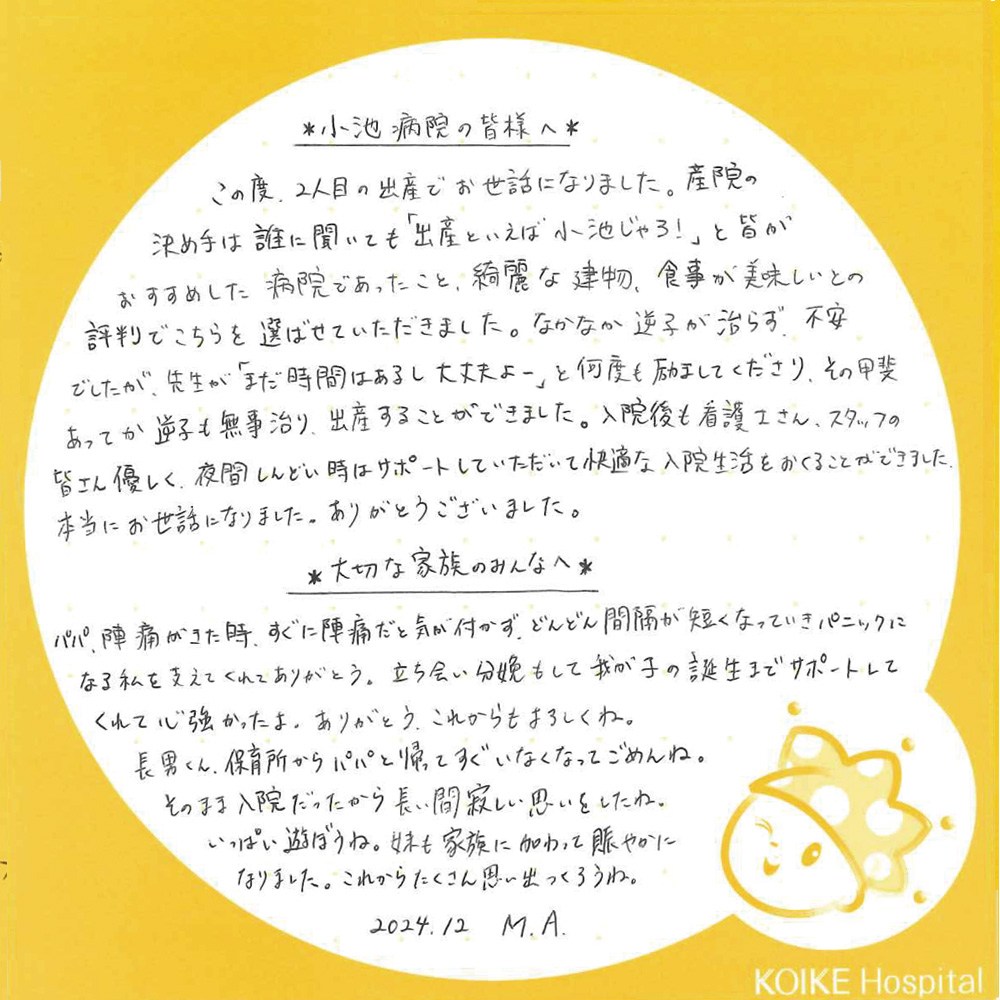 *小池病院の皆様へ*
この度、2人目の出産でお世話になりました。産院の
決め手は誰に聞いても「出産といえば小池じゃろ!」と皆が
おすすめした病院であったこと、綺麗な建物、食事が美味しいとの
評判でこちらを選ばせていただきました。なかなか逆子が治らず、不安
でしたが、先生が「まだ時間はあるし大丈夫よー」と何度も励ましてくださり、その甲斐
あってか逆子も無事治り、出産することができました。入院後も看護士さん、スタッフの
皆さん優しく、夜間しんどい時はサポートしていただいて快適な入院生活をおくることができました。
本当にお世話になりました。ありがとうございました。
*大切な家族のみんなへ*
パパ、陣痛がきた時、すぐに陣痛だと気が付かず、どんどん間隔が短くなっていきパニックに
なる私を支えてくれてありがとう。立ち会い分娩もして我が子の誕生までサポートして
くれて心強かったよ。ありがとう、これからもよろしくね。
長男くん、保育所からパパと帰ってすぐいなくなってごめんね。
そのまま入院だったから長い間寂しい思いをしたね。
いっぱい遊ぼうね。妹も家族に加わって賑やかに
なりました。これからたくさん思い出つくろうね。
2024.12 M.A.
KOIKE Hospital